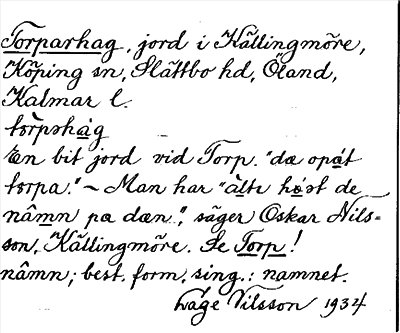 Torparhag, jord i Källingmöre,
Köping sn, Slättbo hd, Öland,
Kalmar l.
tòrpshàg
En bit jord vid Torp. "dæ opát
torpa." ~ Man har "àlte høst de
nâmn pæ dæn.", säger Oskar Nils-
son, Källingmöre. Se Torp!
nâmn; best. form, sing.: namnet.
Låge Nilsson 1934